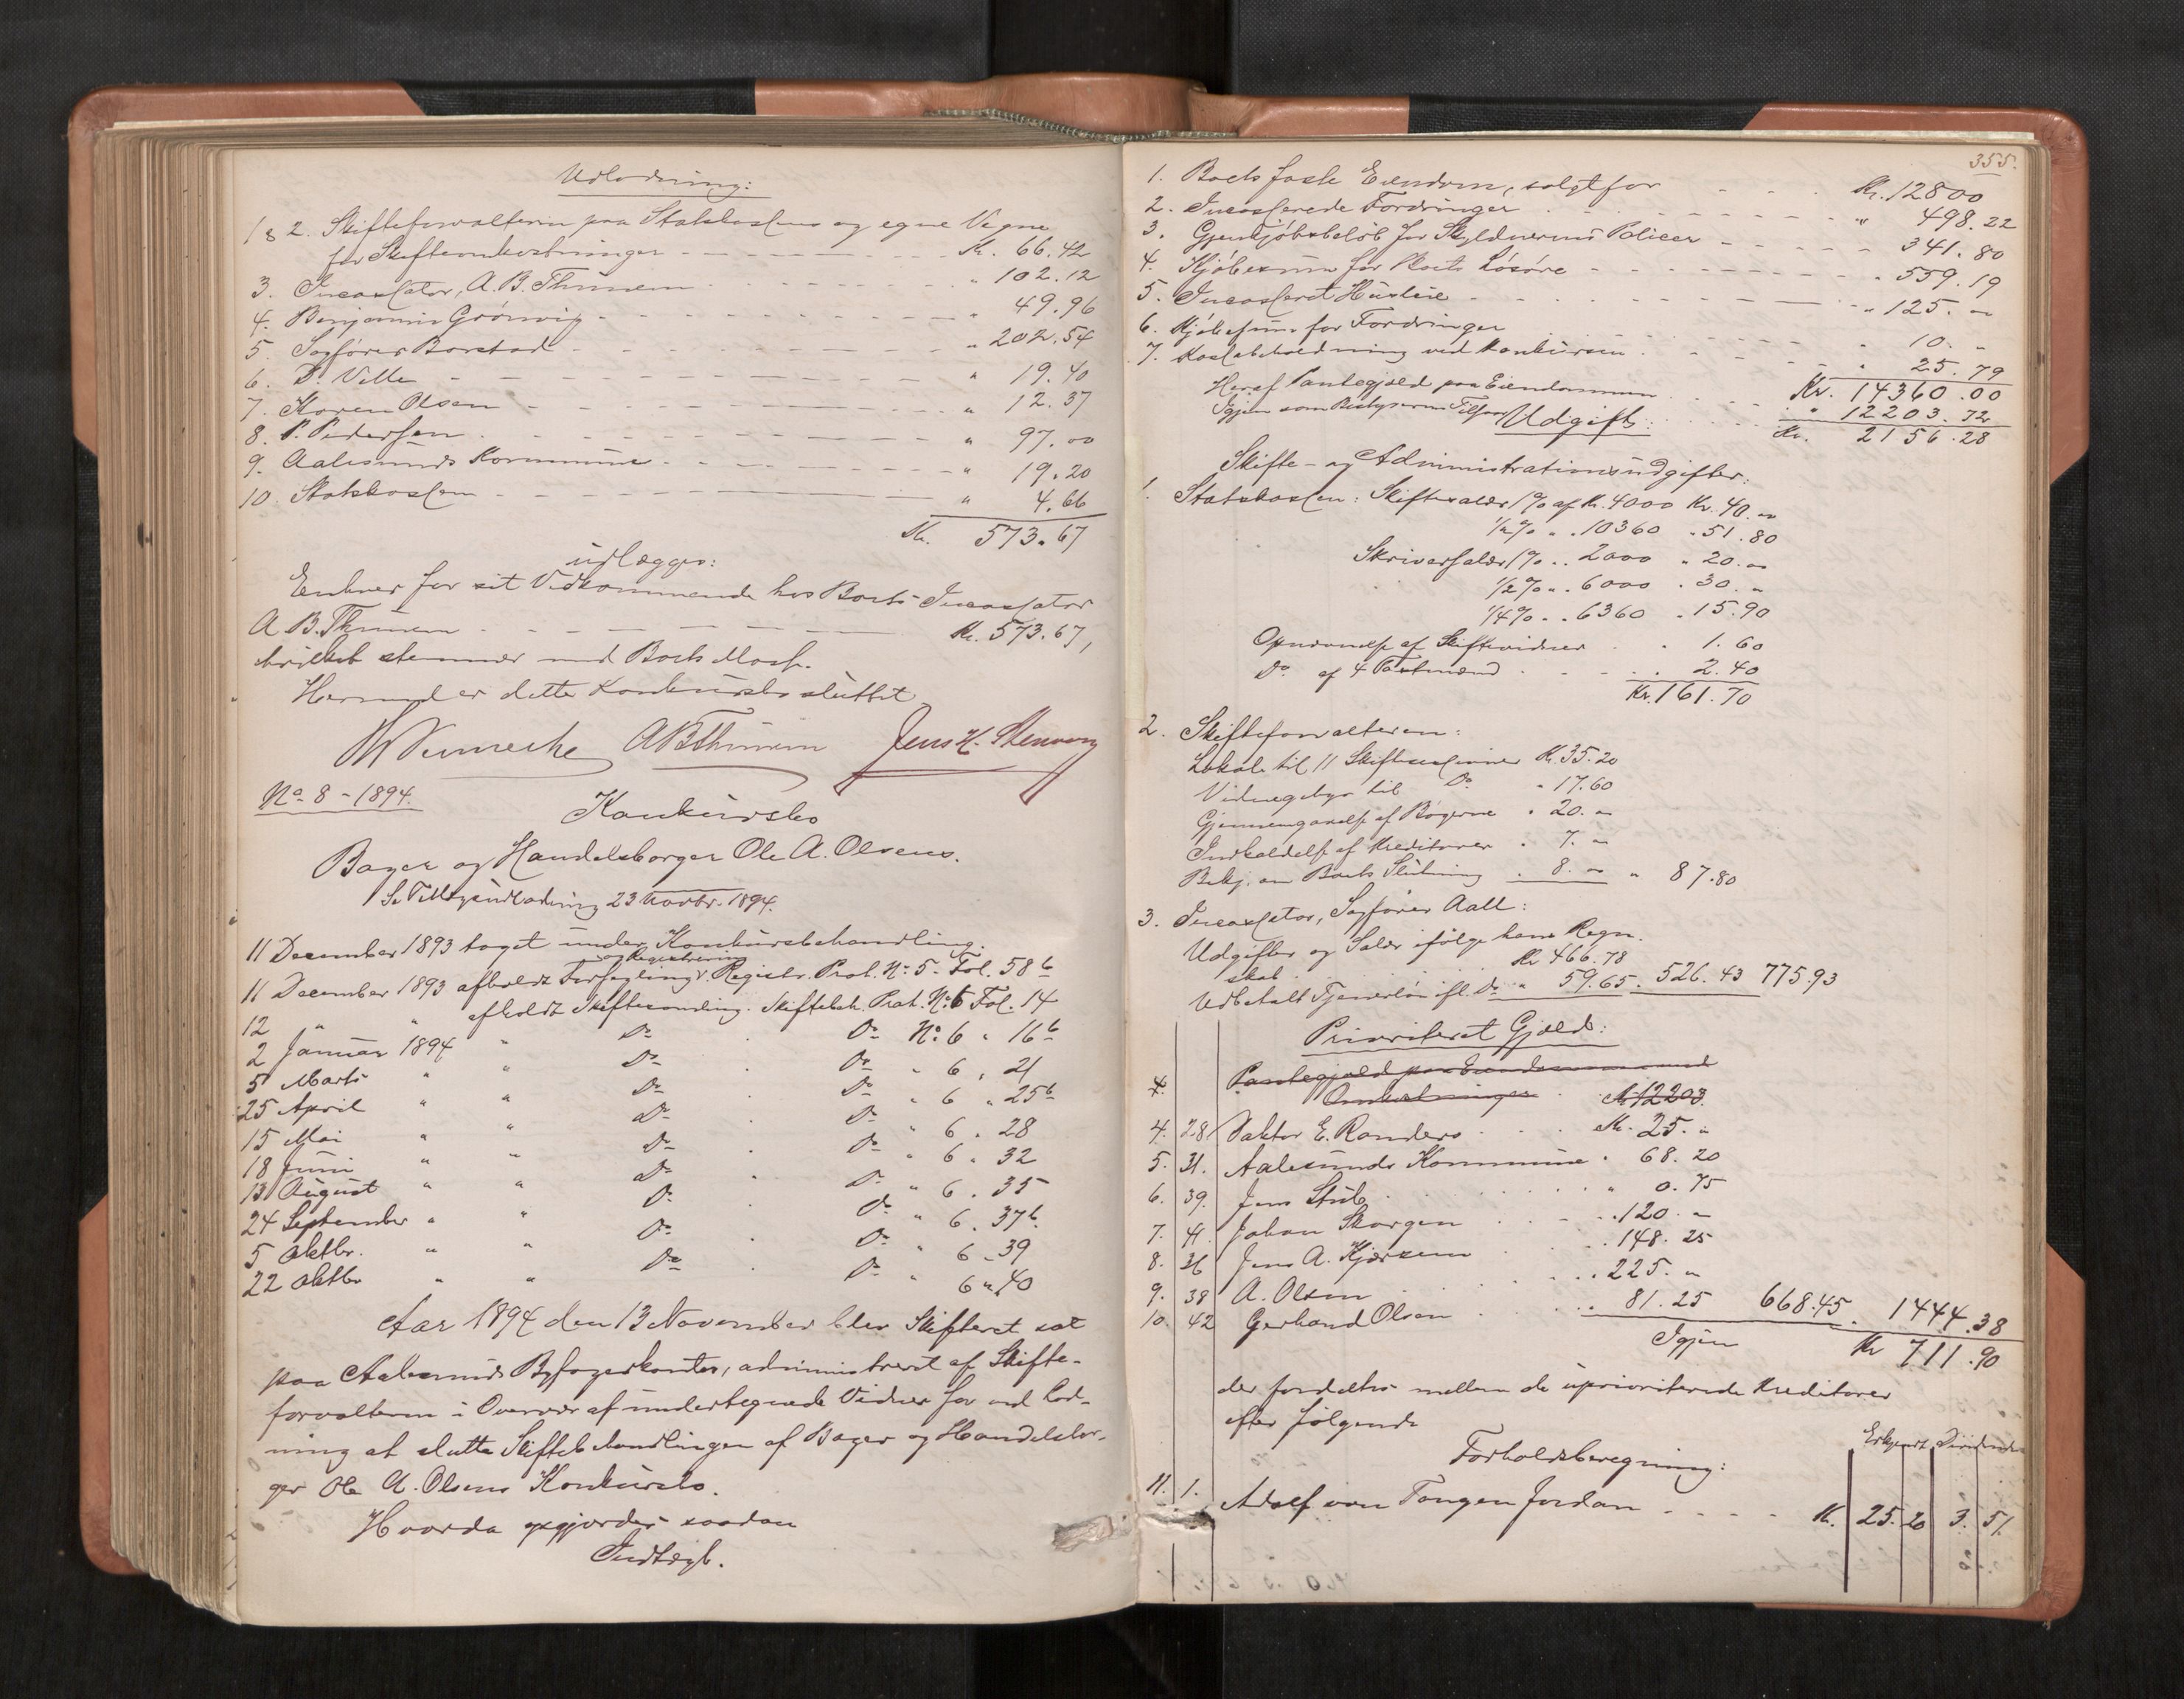 Udlodning:
1 & 2. Skifteforvalteren paa Statskassens og egne Vegne
for Skifteomkostninger - - - Kr. 66.42
3. Incassator, A. B. Thinnem - - - " 102.12
4. Benjamin Grønvig - - - " 49.96
5. Sagfører Borstad - - - " 202.54
6. D. Ville - - - " 19.40
7. Karen Olsen - - - " 12.37
8. P. Pedersen - - - " 97.00
9. Aalesunds Kommune - - - " 19.20
10. Statskassen - - - " 4.66
Kr. 573.67
udlægges:
Enhver for sit Vedkommende hos Boets Incassator
A B. Thinnem - - - Kr. 573.67,
hvilket stemmer med Boets Masse.
Hermed er dette Konkursbo sluttet
ABThinnem Jens H. Stenvang
No. 8 - 1894.
Konkursbo
Bager og Handelsborger Ole A. Olsens.
Se Tillægsudlodning 23 Novbr. 1894.
11 December 1893 taget under Konkursbehandling.
og Registrering
11 December 1893 afholdt Forsegling Registr. Prot. No. 5 - Fol. 58b
12 " " afholdt Skiftesamling. Skiftebeh. Prot. No. 6 Fol. 14
2 Januar 1894 " Do Do No. 6 " 16b
5 Marts " " Do Do " 6 " 21
25 April " " Do Do " 6 " 25b
15 Mai " " Do Do " 6 " 28
18 Juni " " Do Do " 6 " 32
13 August " " Do Do " 6 " 35
24 September " " Do Do " 6 " 37b
5 Oktbr. " " Do Do " 6 " 39
22 Oktbr " " Do Do " 6 " 40
Aar 1894 den 13 November blev Skifteret sat
paa Aalesunds Byfogedkontor, administreret af Skifte-
forvalteren i Overvær af undertegnede Vidner for ved Lod-
ning at slutte Skiftebehandlingen af Bager og Handelsbor-
ger Ole A. Olsens Konkursbo.
Hvorda opgjordes saadan
Indtægt.
355.
1. Boets faste Eiendom, solgt for - - - Kr. 12800
2. Incasserede Fordringer - - - " 498.22
3. Gjenkjøbsbeløb for Skyldnerens Policer - - - " 341.80
4. Kjøbesum for Boets Løsøre - - - " 559.19
5. Incasseret Husleie - - - " 125. "
6. Kjøbesum for Fordringer - - - " 10. "
7. Kassebeholdning ved Konkursen - - - " 25.79
Kr. 14360.00
Heraf Pantegjæld paa Eiendommen " 12203.72
Igjen som Bestyrerens Tilsvar Kr. 2156.28
Udgift:
Skifte- og Administrationsudgifter:
1. Statskassen: Skiftesalær 1% af Kr. 4000 Kr. 40. "
1/2% " " 10360 " 51.80
Skriversalær 1% " " 2000 " 20. "
1/2% " " 6000 " 30. "
1/4% " " 6360 " 15.90
Opnævnelse af Skiftevidner " 1.60
Do af 4 Takstmænd " 2.40
Kr. 161.70
2. Skifteforvalteren:
Lokale til 11 Skiftesessioner Kr. 35.20
Vidnegebyr til Do " 17.60
Gjennemgaaelse af Bøgerne " 20. "
Indkaldelse af Kreditorer " 7. "
Bekj. om Boets Slutning " 8. " " 87.80
3. Incassator, Sagfører Aall:
Udgifter og Salær ifølge hans Regn-
skab Kr 466.78
Udbetalt Tjenerløn ifl. Do " 59.65. 526.43 775.93
Prioriteret Gjæld:
4. Pantegjæld paa Eiendommen med
Omkostninger Kr 12203.
4. 28 Doktor E. Randers Kr. 25. "
5. 31. Aalesunds Kommune " 68.20
6. 39. Jens Stub " 0.75
7. 41 Johan Skorgen " 120. "
8. 36 Jens A. Hjørsem " 148.25
9. 38 A. Olsen " 225. "
10. 42 Gerhard Olsen " 81.25 668.45. 1444.38
Igjen Kr 711.90
der fordeles mellem de uprioriterede Kreditorer
efter følgende
Forholdsberegning:
Erkjendt Dividende
11. 1. Adolf von Tangen Jordan - - - Kr. 25.20 3.51